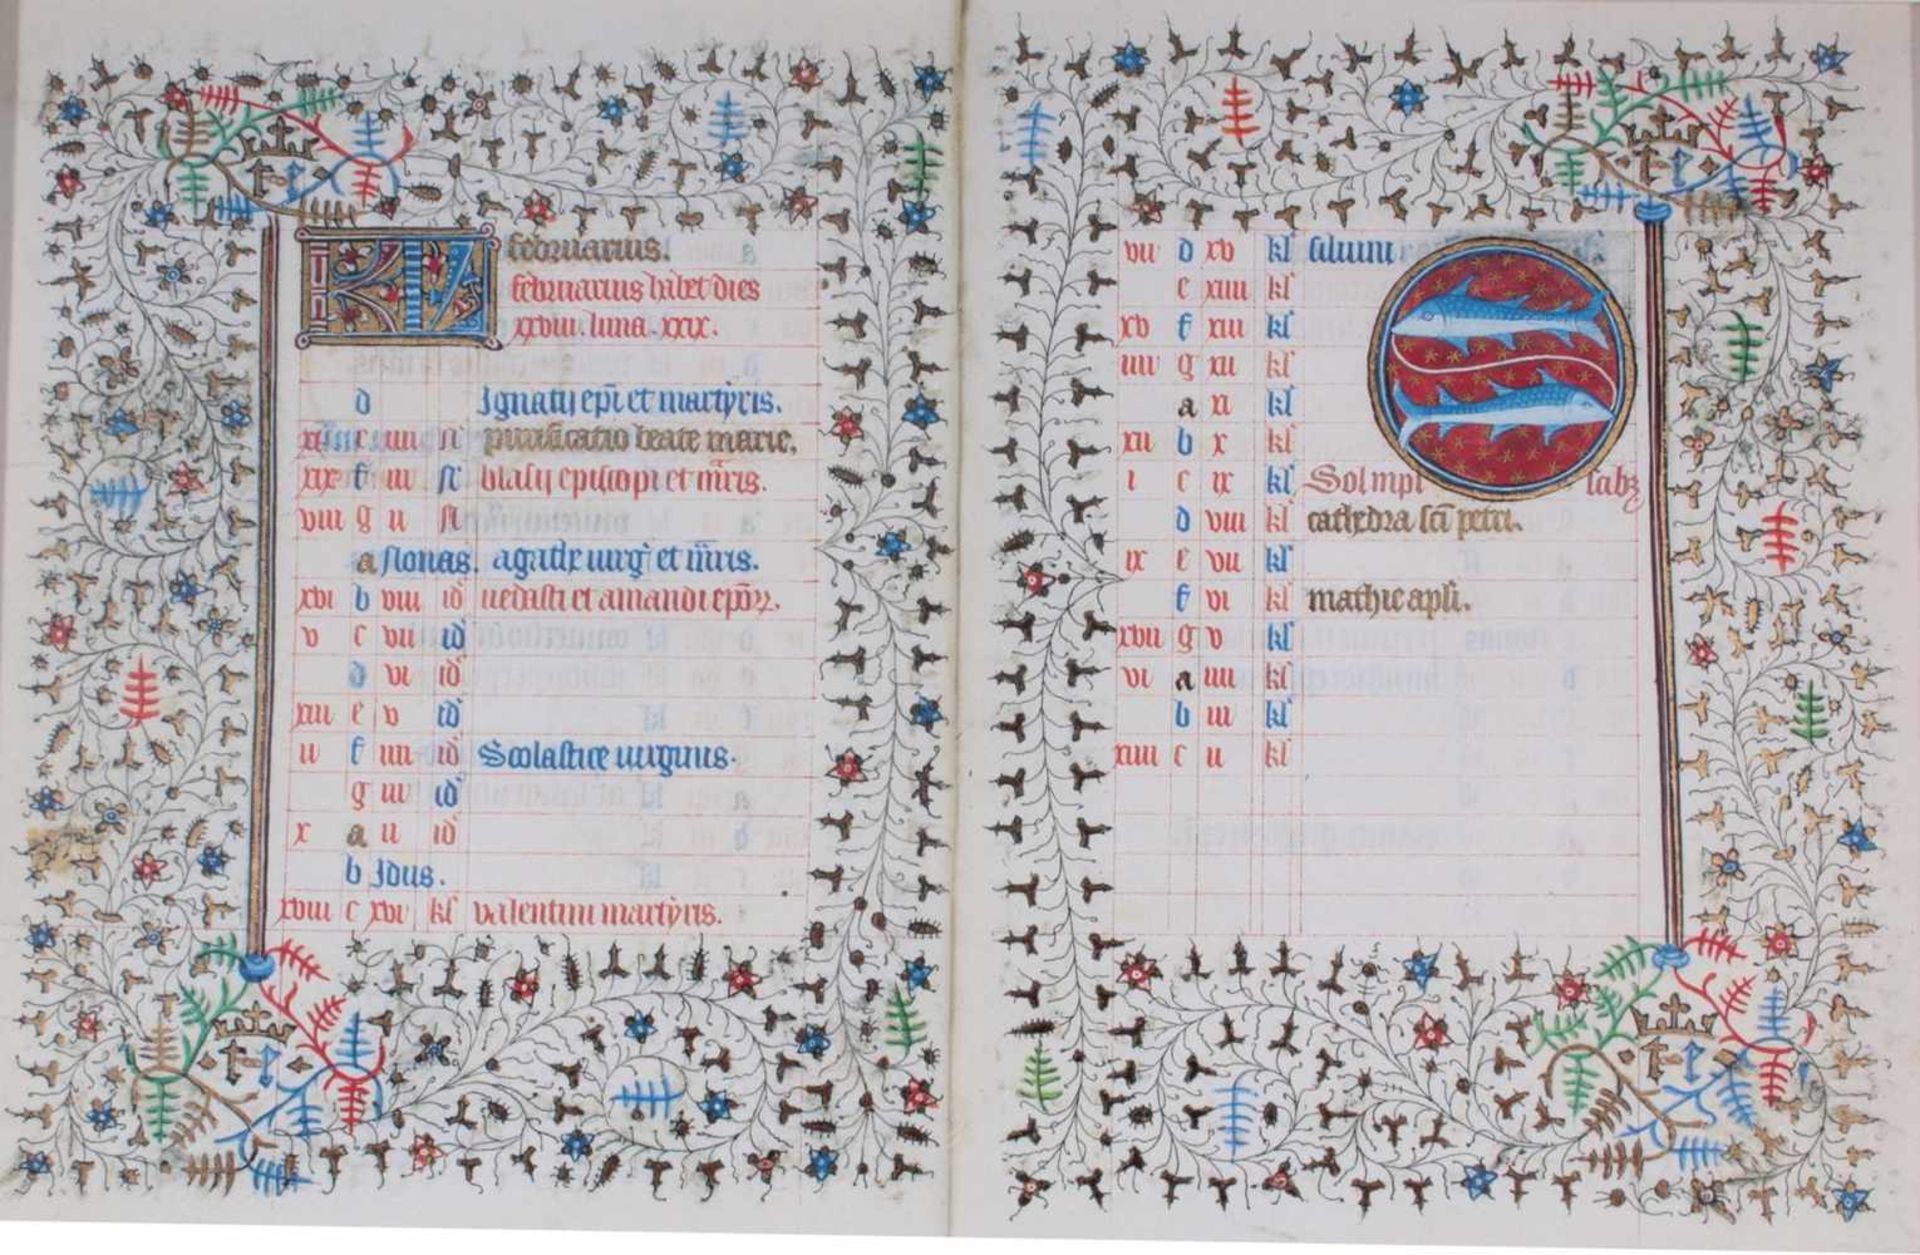 KL februarius.
februarius habet dies
xxviii. luna. xxix.
d Ignatij epī et martyris.
xi e iiii purificatio beate marie.
xix f iii blasij episcopi et mris.
viii g ii
a Nonas. agathe uirg et mris.
xvi b viii id uedasti et amandi
v c vii id
d vi id
xiii e v id
ii f iiii id Scolastice uirginis.
g iii id
x a ii id
b Idus.
xviii c xvi kl valentini martyris.
vii d xv kl
e xiiii kl
xv f xiii kl
iiii g xii kl
a xi kl
xii b x kl
i c ix kl Sol
d viii kl cathedra sci petri.
ix e vii kl
f vi kl mathie apli.
xvii g v kl
vi a iiii kl
b iii kl
xiiii c ii kl